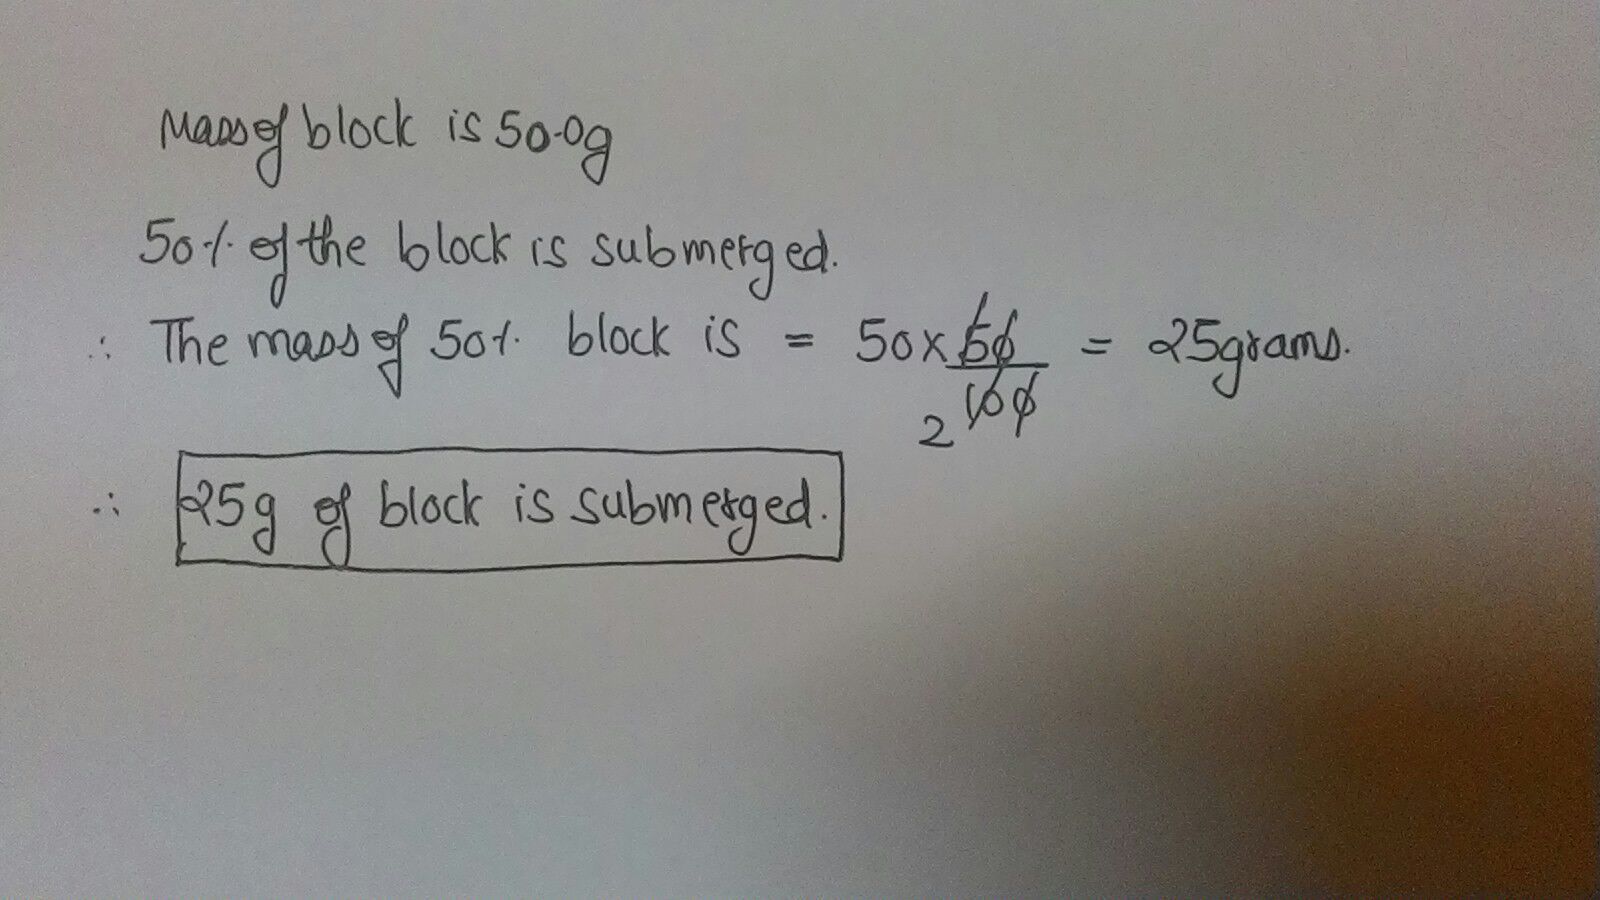 Mass of block is 50.0g
50% of the block is submerged.
∴ The mass of 50% block is = 50 × 50/100 = 25grams.
2
∴ 25g of block is submerged.